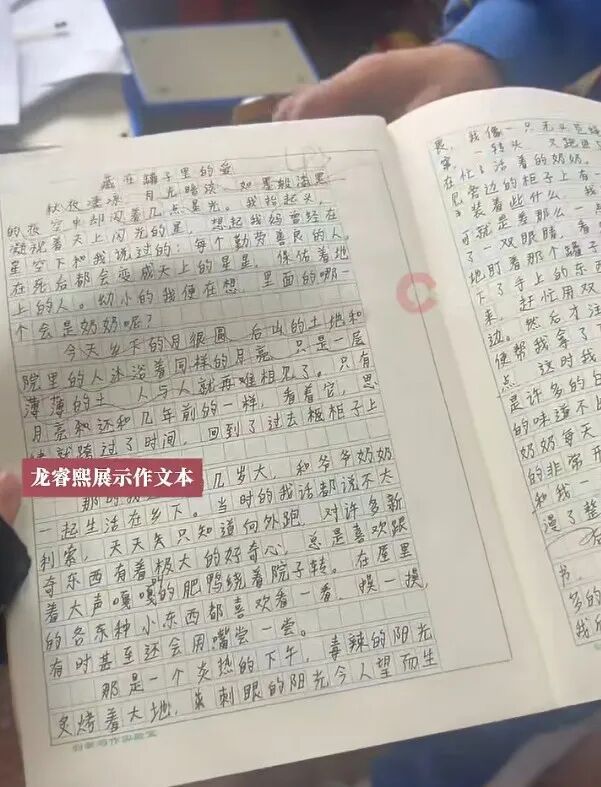 藏在罐子里的爱
秋夜凄凉，月光暗淡，如墨般漆黑
的夜空中却闪着几点星光。我抬起头，
凝视着天上闪光的星，想起我妈曾经在
星空下和我说过的：每个勤劳善良的人，
在死后都会变成天上的星星，保佑着地
上的人。幼小的我便在想，里面的哪一
个会是奶奶呢？
今天乡下的月很圆，后山的土地和
院里的人沐浴着同样的月亮，只是一层
薄薄的土，人与人就再难相见了。只有
月亮和还和几年前的一样，看着它，思
绪就跨过了时间，回到了过去板柜子上
龙睿熙展示作文本
几岁大，和爷爷奶奶
一起生活在乡下。当时的我话都说不大
利索，天天只知道向外跑，对许多新
奇东西有着极大的好奇心，总是喜欢跟
着大声嘎嘎的肥鸭绕着院子转。在屋里
的各种小东西都喜欢看一看，摸一摸，
有时甚至还会用嘴尝一尝。
那是一个炎热的下午，毒辣的阳光
炙烤着大地，刺眼的阳光令人望而生
我像一只无头苍
一转头，又跑进
在忙活着的奶奶。
旁边的柜子上有一
装着些什么，我
可就是差那么一
了一双眼睛，看
地盯着那个罐子
下了手上的东西
来，赶忙用双
边。然后才注
便帮我拿了下
点，这时我
是许多的白
的味道不
奶奶每天
的非常开
和我一
漫了整
书，
多的
我